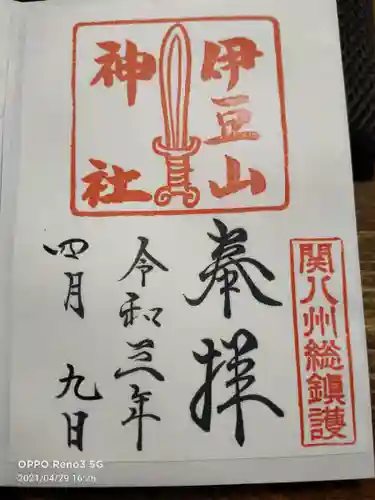 関八州総鎮護
伊豆山
神社
奉拝
令和三年
四月九日
OPPO Reno3 5G
2021/04/29 16:26